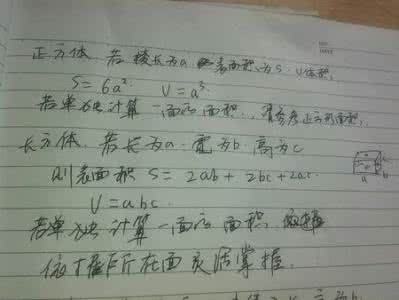 正方体 若棱长为a 表面积为S V体积
S=6a² V=a³
若单独计算一面的面积，请参考正方形面积
长方体 若长为a 宽为b 高为c
则表面积 S=2ab+2bc+2ac
V=abc
若单独计算一面的面积
依据所在面灵活掌握